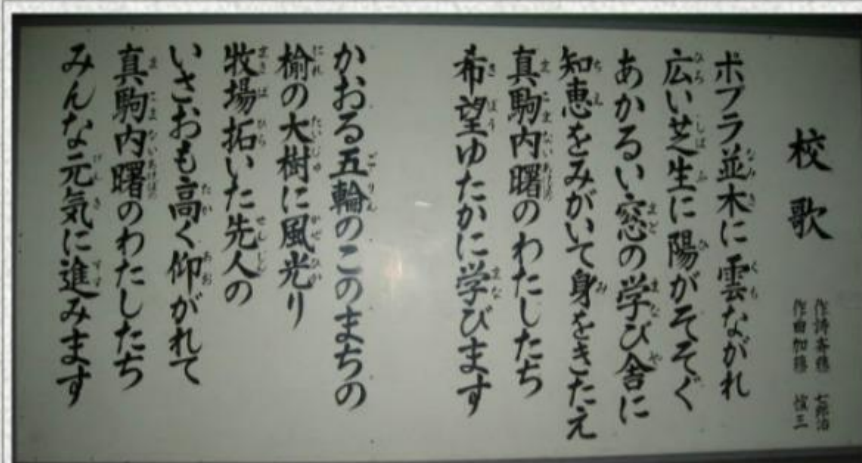 校歌
作詩 斉藤 七郎治
作曲 加藤 愼三
ポプラ並木に雲ながれ
広い芝生に陽がそそぐ
あかるい窓の学び舎に
知恵をみがいて身をきたえ
真駒内曙のわたしたち
希望ゆたかに学びます
かおる五輪のこのまちの
楡の大樹に風光り
牧場拓いた先人の
いさおも高く仰がれて
真駒内曙のわたしたち
みんな元気に進みます